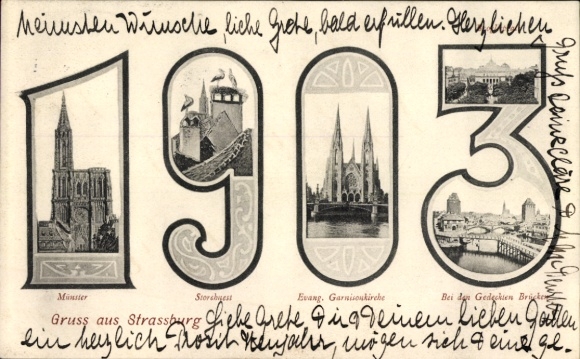 heimsten Wünsche, liebe Grete, bald erfüllen. Herzlichen
Gruß
1903
Münster
Storchnest
Evang. Garnisonkirche
Bei den Gedeckten Brücken
Gruss aus Strassburg
Liebe Grete, Dir & Deinem lieben
ein herzlich Prosit Neujahr, mögen sich Deine ge-